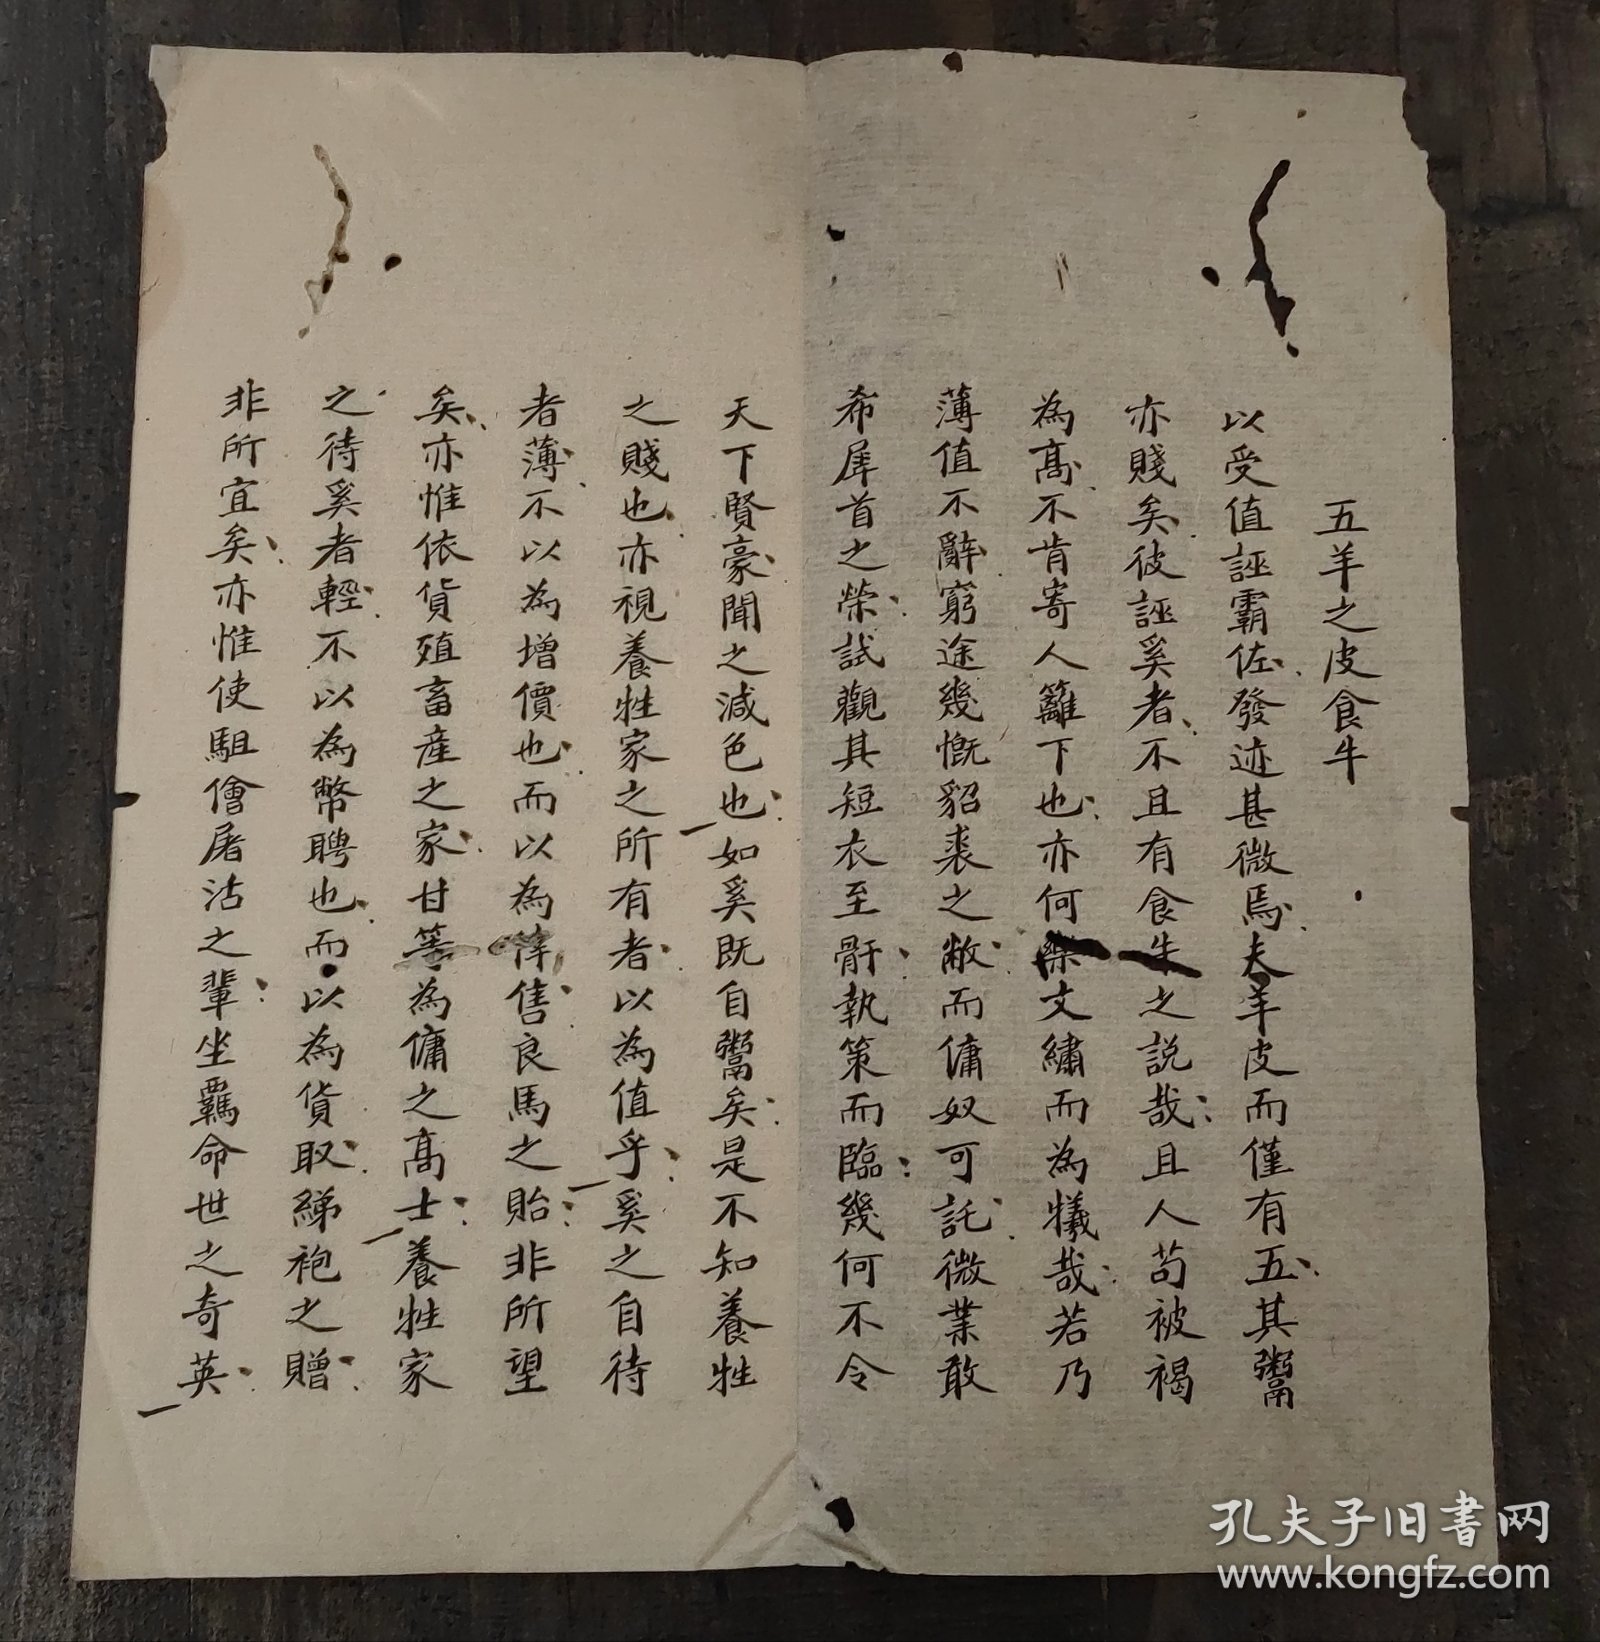 五羊之皮食牛
以受值誣霸佐發迹甚微焉夫羊皮而僅有五其鬻
亦賤矣彼誣奚者不且有食牛之説哉且人苟被褐
為高不肯寄人籬下也亦何樂文繡而為犧哉若乃
薄值不辭窮途幾慨貂裘之敝而傭奴可託微業敢
希犀首之榮試觀其短衣至骭執策而臨幾何不令
天下賢豪聞之減色也如奚既自鬻矣是不知養牲
之賤也亦視養牲家之所有者以為值乎奚之自待
者薄不以為增價也而以為倖售良馬之貽非所望
矣亦惟依貨殖畜産之家甘等為傭之高士養牲家
之待奚者輕不以為幣聘也而以為貨取綈袍之贈
非所宜矣亦惟使駔儈屠沽之輩坐羈命世之奇英
孔夫子旧書网
www.kongfz.com